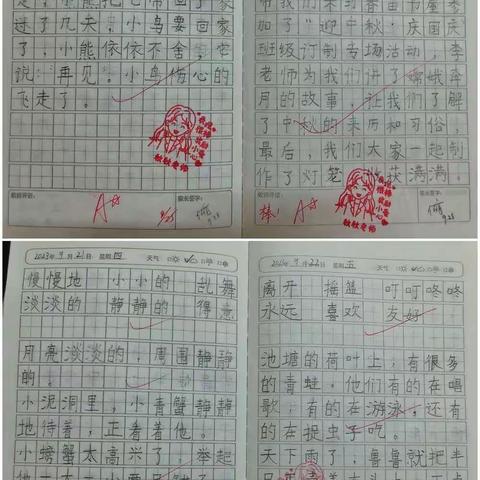 过了几天，小鸟要回家
了，小熊依依不舍，它
说："再见。"小鸟伤心的
飞走了。
教师评语：
家长签字：
A☆
9.25
加了"迎中秋，庆国庆"
班级订制专场活动，李
老师为我们讲了嫦娥奔
月的故事，让我们了解
了中秋的来历和习俗，
最后，我们大家一起制
作了灯笼，收获满满。
教师评语：
家长签字：
棒！
A☆
2023年9月21日 星期四 天气
慢慢地 小小的 乱舞
淡淡的 静静的 得意
月亮淡淡的，周围静静
的。
小泥洞里，小青蟹静静
地待着，正看着他。
小螃蟹太高兴了，举起
9月22日 星期五 天气
离开 摇篮 叮叮咚咚
永远 喜欢 友好
池塘的荷叶上，有很多
的青蛙，他们有的在唱
歌，有的在游泳，还有
的在捉虫子吃。
天下雨了，鲁鲁就把半